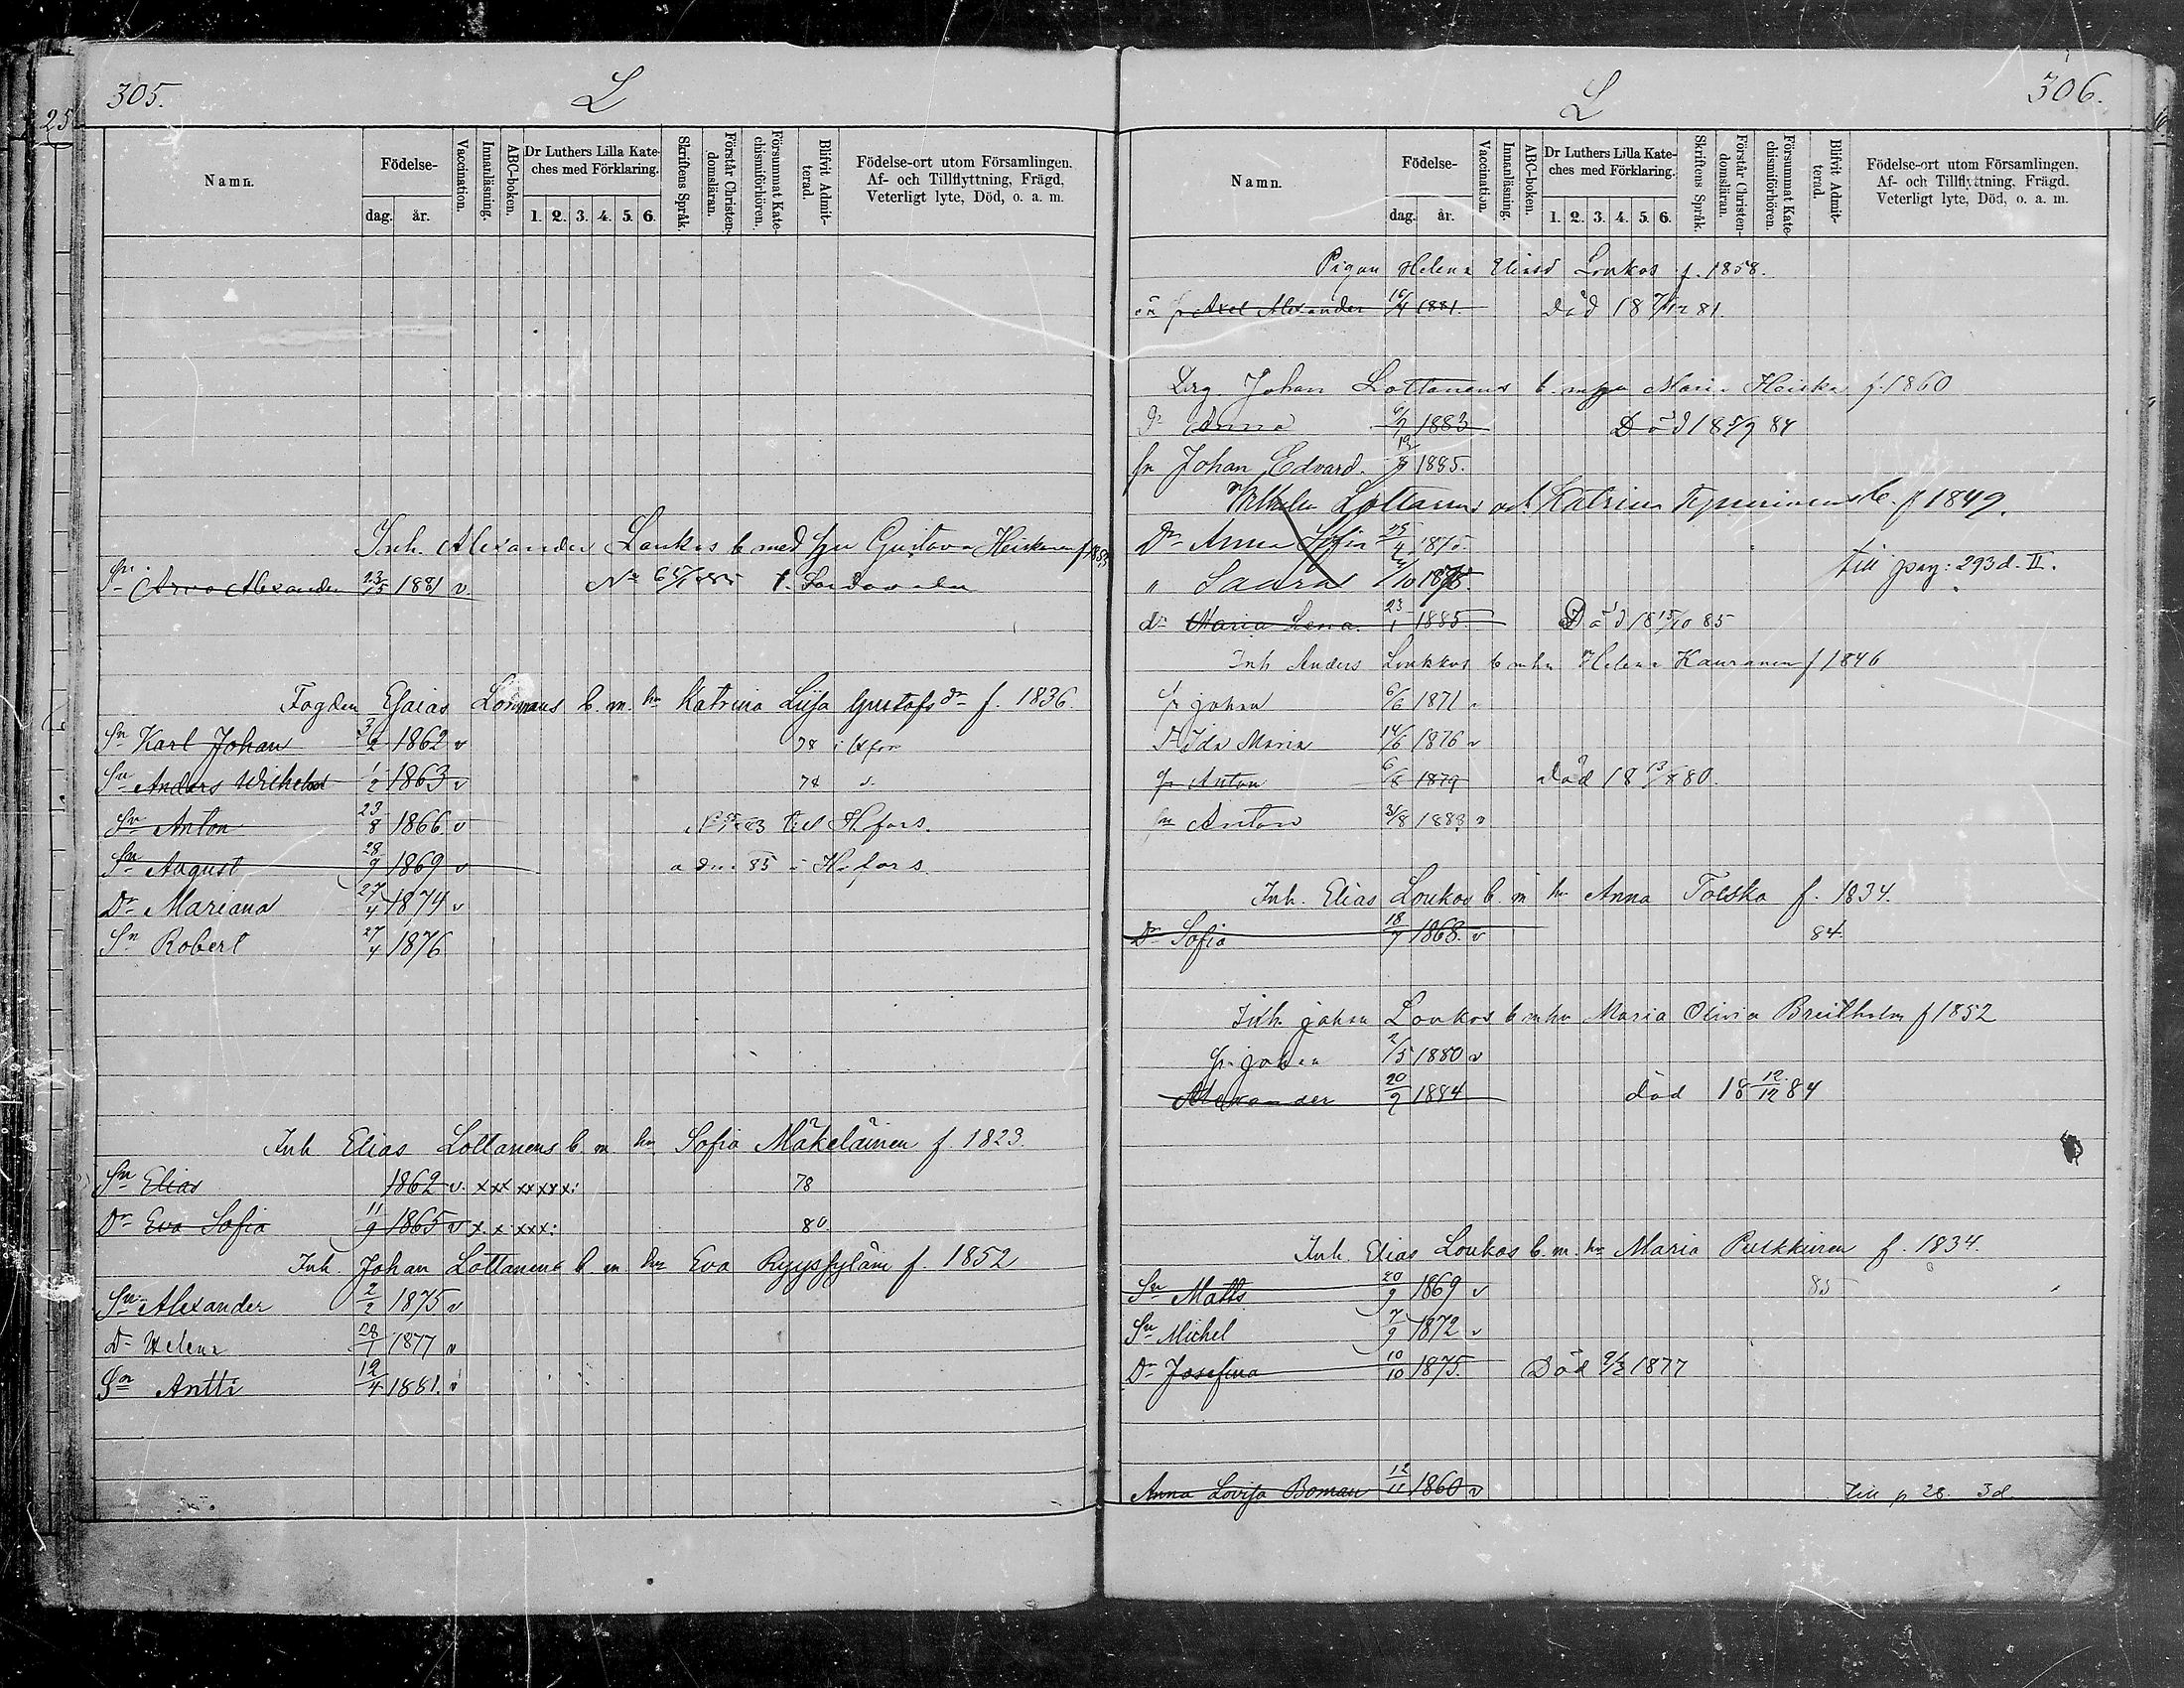 305.
L
Namn.
Födelse-
dag.
år.
Vaccination.
Innanläsning.
ABC-boken.
Dr Luthers Lilla Kate-
ches med Förklaring.
1. 2. 3. 4. 5. 6.
Skriftens Språk.
Förstår Christen-
domsläran.
Försummat Kate-
chismiförhören.
Blifvit Admit-
terad.
Födelse-ort utom Församlingen.
Af- och Tillflyttning, Frägd,
Veterligt lyte, Död, o. a. m.
Inh. Alexander Loukos b med hu Gustava Heiskanen f
Sn Arvo Alexander 23/5 1881 v
Fogden Esaias b. m. hu Katrina Lijsa Gustafs dr f. 1836.
Sn Karl Johan 3/2 1862 v 78 i Hfors
Sn Anders Wilhelm 1/2 1863 v 78
Sn Anton 23/8 1866 v till H.fors.
Sn August 28/9 1869 v adm. 85 i H.fors.
Dr Mariana 27/4 1874 v
Sn Robert 27/4 1876
Inh Elias Lottanens b. m. hu Sofia Mäkeläinen f. 1823.
Sn Elias 1862 v. x x x x x x x: 78
Dr Eva Sofia 11/9 1865 v x. x x x x: 80.
Inh. Johan Lottanens b. m. hu Eva Ryyssyläin f. 1852
Sn Alexander 2/2 1875 v
Dr Helena 28/1 1877 v
Sn Antti 12/4 1881. v
L
306.
Namn.
Födelse-
dag.
år.
Vaccination.
Innanläsning.
ABC-boken.
Dr Luthers Lilla Kate-
ches med Förklaring.
1. 2. 3. 4. 5. 6.
Skriftens Språk.
Förstår Christen-
domsläran.
Försummat Kate-
chismiförhören.
Blifvit Admit-
terad.
Födelse-ort utom Församlingen.
Af- och Tillflyttning, Frägd.
Veterligt lyte, Död, o. a. m.
Pigan Helena Eliasd Loukos f. 1858.
Axel Alexander 16/4 1881. Död 18 7/12 81.
Drg. Johan Lottanens b. m hu Maria Heiska f. 1860
Dr Anna 6/7 1883 Död 18 5/9 84
Sn Johan Edvard. 12/8 1885.
Wilhelm Lottanens och Katrina b. f 1849.
Dr Anna Sofia 25/4 1875.
" Saara /10 1878. till pag: 293 d. II.
dr Maria Lena. 23/1 1885. Död 18 13/10 85
Inh Anders Loukkos b m hu Helena Kauranen f 1846
Sn Johan 6/6 1871 v
Dr Ida Maria 14/6 1876 v
Sn Anton 6/8 1879 Död 18 13/8 80.
Sn Anton 3/8 1883 v
Inh. Elias Loukos b. m hu Anna Tolska f. 1834.
Dr Sofia 18/7 1868. v 84.
Inh. Johan Loukos b m hu Maria Olivia Breitholm f 1852
Sn Johan 2/5 1880 v
Alexander 20/9 1884 död 18 12/12 84
Inh. Elias Loukos b. m. hu Maria Pulkkinen f. 1834.
Sn Matts 20/9 1869 v 85
Sn Michel 7/9 1872 v
Dr Josefina 10/10 1875. Död 9/2 1877
Anna Lovisa Boman 12/11 1860 v till p 28. 3d.